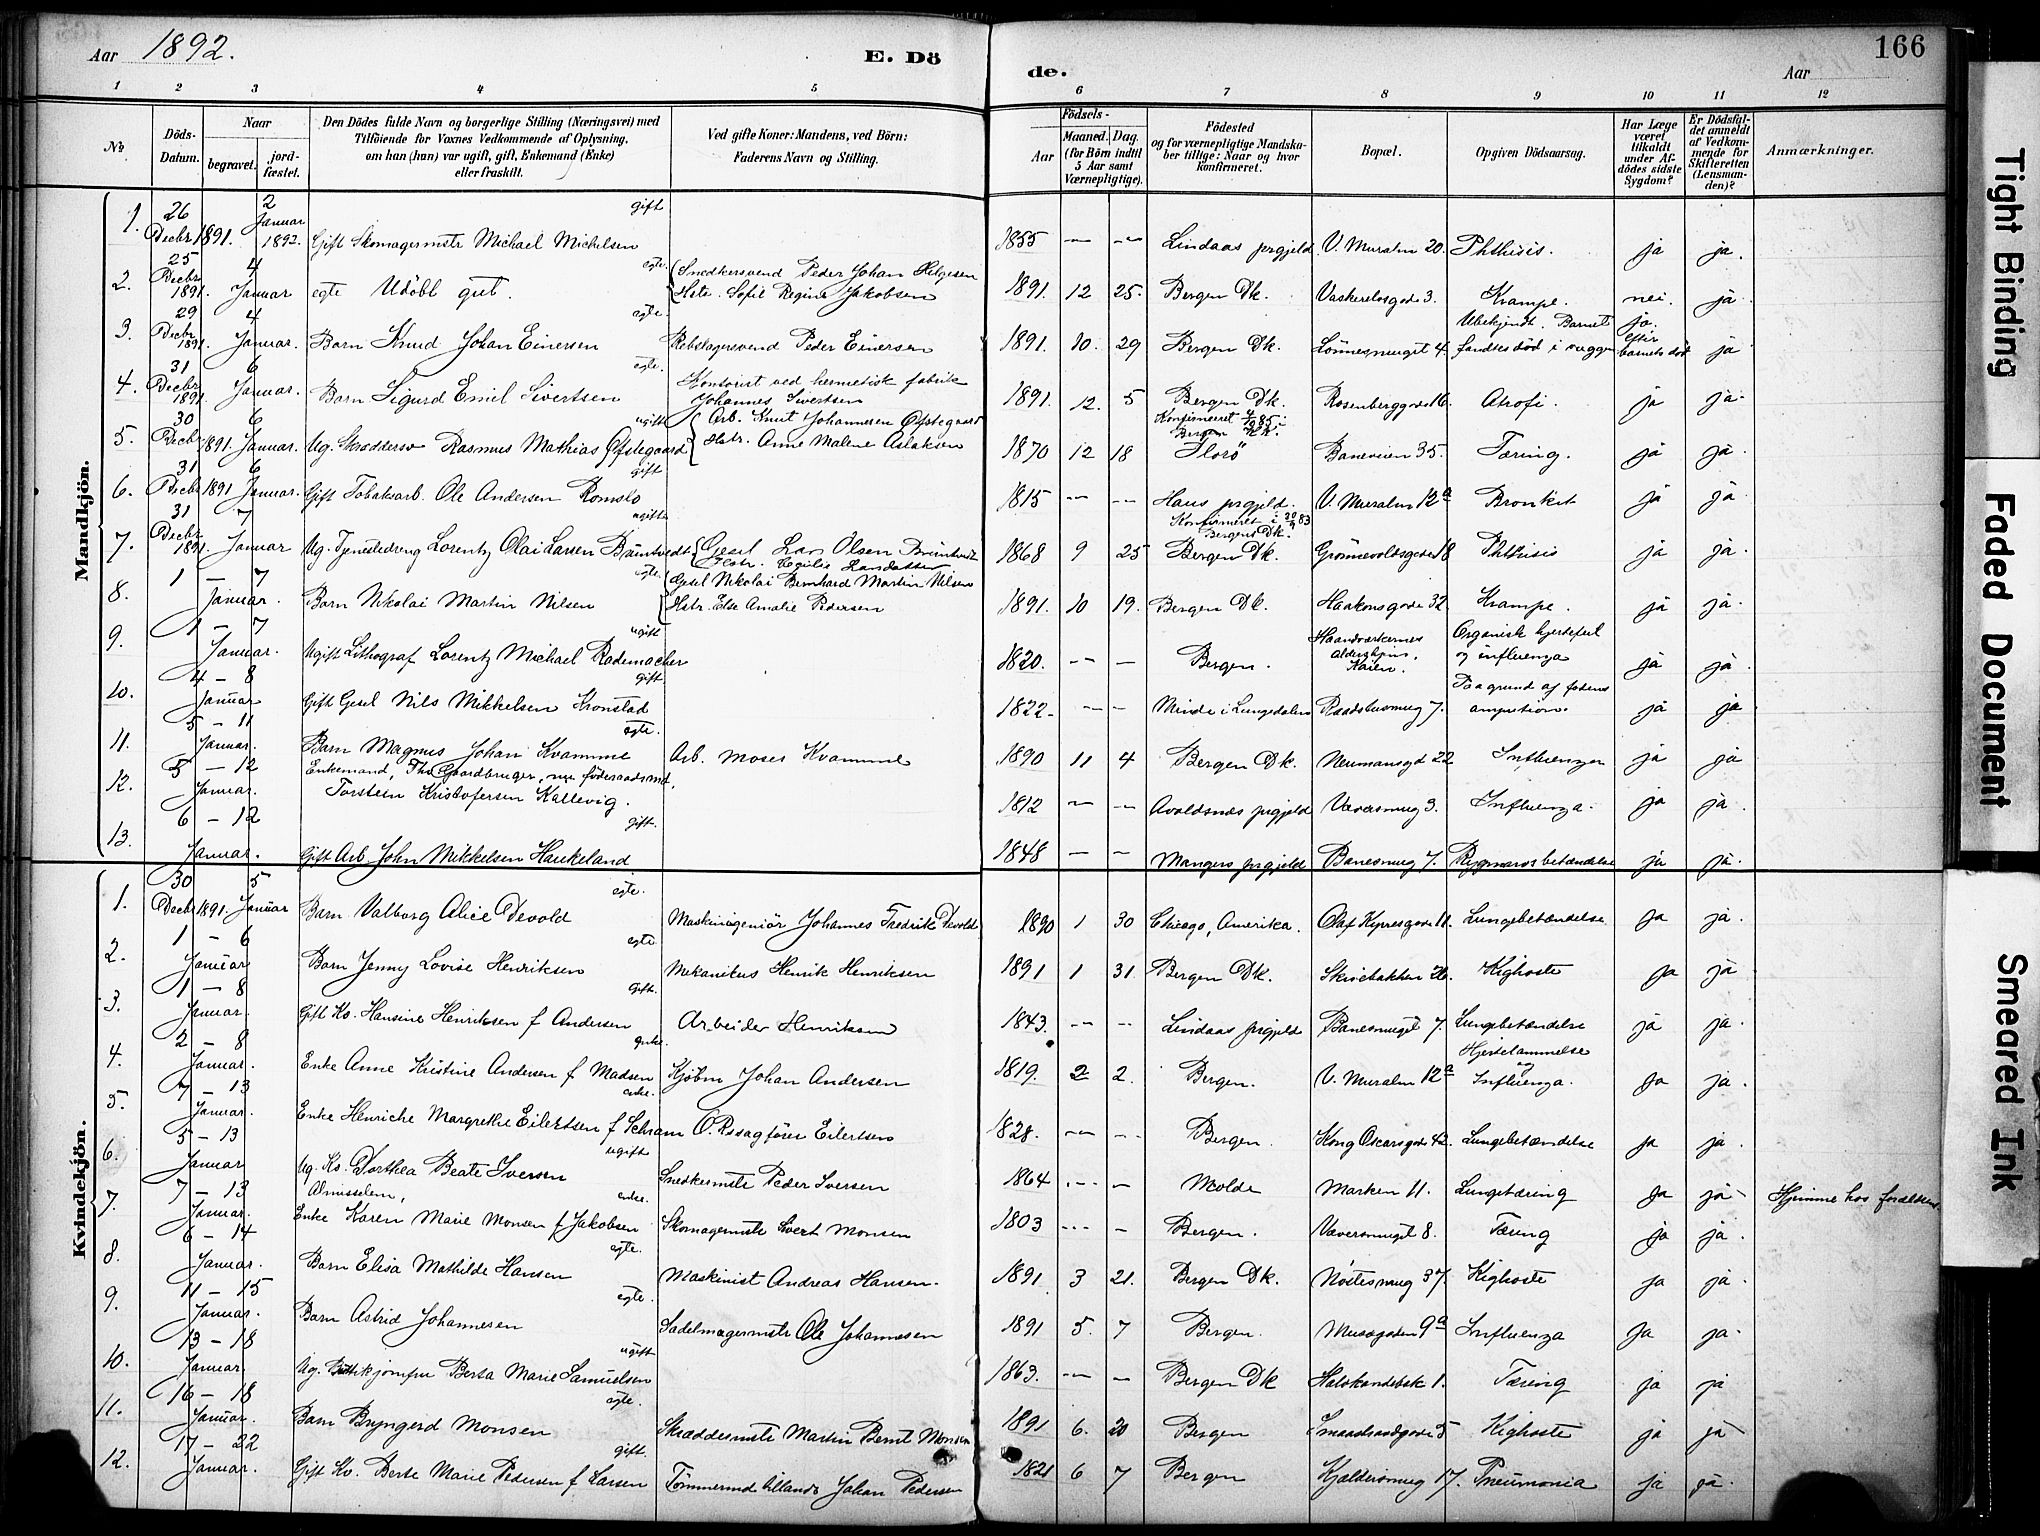 Aar 1892.
E. Dö
de.
Aar
166
1 2 3 4 5 6 7 8 9 10 11 12
№
Döds-Datum.
Naar
begravet.
jord-fæstet.
Den Dödes fulde Navn og borgerlige Stilling (Næringsvei) med
Tilföiende for Voxnes Vedkommende af Oplysning,
om han (hun) var ugift, gift, Enkemand (Enke)
eller fraskilt.
Ved gifte Koner: Mandens, ved Börn:
Faderens Navn og Stilling.
Födsels-
Aar
Maaned. Dag.
(for Börn indtil
5 Aar samt
Værnepligtige).
Födested
og for værnepligtige Mandska-
ber tillige: Naar og hvor
konfirmeret.
Bopæl.
Opgiven Dödsaarsag.
Har Læge
været
tilkaldt
under Af-
dödes sidste
Sygdom?
Er Dödsfal-
det anmeldt
af Vedkom-
mende for
Skifteretten
(Lensman-
den)?
Anmærkninger.
Mandkjön.
1. 26 Decbr 1891. 2 Januar 1892. gift Gift Skomagermstr Michael Michelsen 1855 — — Lindaas prgjeld V. Muralm 20. Phthisis. ja ja.
2. 25 Decbr 1891. 4 Januar egte. egte Udöbt gut. Snedkersvend Peder Johan Helgesen
Hstr. Sofie Regine Jakobsen 1891. 12 25. Bergen Dk. 3. Krampe. nei. ja
3. 29 Decbr 1891. 4 Januar. egte. Barn Knud Johan Einersen Rebslagersvend Peder Einersen 1891. 10. 29 Bergen Dk. 4. Ubekjendt. Barnet
fandtes död i vuggen ja. efter barnets död ja
4. 31 Decbr 1891. 6 Januar. egte. Barn Sigurd Emil Sivertsen Kontorist ved hermetisk fabrik
Johannes Sivertsen 1891. 12. 5 Bergen Dk. Rosenberggode 16. Atrofi. ja ja.
5. 30 Decbr 1891. 6 Januar. ugift Ug. Skræddersv Rasmus Mathias Öfstegaard Arb. Knut Johannesen Öfstegaard
Hstr. Anne Malene Aslaksen 1870 12 18 Konfirmeret 85 i
Bergen
Florö Baneveien 35. Tæring. ja ja.
6. 31 Decbr 1891 6 Januar. gift Gift Tobaksarb. Ole Andersen Romslo 1815 — — Haus prgjeld. V. Muralm 12a Bronkit ja ja.
7. 31 Decbr 1891. 7 Januar ugift Ug. Tjenstedreng Lorentz Olai Larsen Gesel Lars Olsen 1868 9 25 Konfirmeret i 83
Bergens Dk.
Bergen Dk. Grönnevoldsgode 18 Phthisis ja ja.
8. 1 – 7 Januar. egte. Barn Nikolai Martin Nilsen Gesel Nikolai Bernhard Martin Nilsen
Hstr. Else Amalie Pedersen 1891. 10 19. Bergen Dk. Haakonsgode 32. Krampe. ja ja.
9. 1 – 7 Januar. ugift Ugift Lithograf Lorentz Michael Rademacher 1820. — — Bergen. Haandværkernes
Kaien. Organisk hjertefeil
og influenza ja ja.
10. 4 – 8 Januar gift. Gift Gesel Nils Mikkelsen Kronstad 1822. — — Minde i Lungedalen Raadstusmug 7. Paa grund af fodens
ampution. ja ja
11. 5 – 11 Januar. egte. Barn Magnus Johan Kvamme Arb. Moses Kvamme 1890 11 4 Bergen Dk. Neumansgd 22 Influenza ja ja
12. 5 – 12 Januar. Enkemand, Gaardbruger, nu föderaadsmd,
Torstein Kristofersen Kallevig. 1812 — — Avaldsnes prgjeld Væversmug 3. Influenza. ja ja.
13. 6 – 12 Januar. gift. Gift Arb. John Mikkelsen Haukeland 1848 — — Mangers prgjeld Banesmug 7. Rygmarvsbetændelse ja ja.
Kvindekjön.
1. 30 Decbr 1891 5 Januar egte. Barn Valborg Alice Devold Maskiningeniör Johannes Fredrik Devold 1890 1 30 Chicago, Amerika. Olaf Kyresgode 11. Lungebetændelse ja ja.
2. 1 – 6 Januar egte. Barn Jenny Lovise Henriksen Mekanikus Henrik Henriksen 1891 1 31. Bergen Dk. 26. Kighoste ja ja
3. 1 – 8 Januar. gift. Gift Ko. Hansine Henriksen f Andersen Arbeider Henriksen 1843. — — Lindaas prgjeld Banesmuget 7. Lungebetændelse ja ja.
4. 2 – 8 Januar. enke. Enke Anne Kristine Andersen f Madsen Kjöbm Johan Andersen 1819. 2 2. Bergen. V. Muralm 12a Hjertelammelse
og
Influenza. ja ja.
5. 7 – 13 Januar. enke. Enke Henriche Margrethe Eilertsen f Schram O.R.sagförer Eilertsen 1828. — — Bergen. Kong Oscarsgode 42. Lungebetændelse ja ja.
6. 5 – 13 Januar ugift Ug. Ko. Dorthea Beate Iversen Snedkermstr Peder Iversen 1864 — — Molde Marken 11. Lungetæring ja ja Hjemme hos forældrene.
7. 7 – 13 Januar. enke. Almisselem,
Enke Karen Marie Monsen f Jakobsen Skomagermstr Sivert Monsen 1803 — — Bergen. Væversmuget 8. Tæring ja ja.
8. 6 – 14 Januar. egte. Barn Elisa Mathilde Hansen Maskinist Andreas Hansen. 1891 3 21. Bergen Dk. Nöstesmug 37. Kighoste ja ja.
9. 11 – 15 Januar. egte. Barn Astrid Johannesen Sadelmagermstr Ole Johannesen 1891 5. 7 Bergen. 9a Influenza ja ja.
10. 13 – 18 Januar. ugift Ug. Butikjomfru Berta Marie Samuelsen 1863. — — Bergen Dk 1. Tæring ja ja
11. 16 – 18 Januar. egte. Barn Bryngerd Monsen Skræddermstr Martin Bernt Monsen 1891 6. 20 Bergen Smaastrandgode 5 Kighoste ja ja
12. 17 – 22 Januar. gift. Gift Ko. Berte Marie Pedersen f Larsen Tömmermd tillands Johan Pedersen 1821 6 7 Bergen Kjeldersmug 17. Pneumonia ja ja.
Tight Binding
Faded Document
Smeared Ink